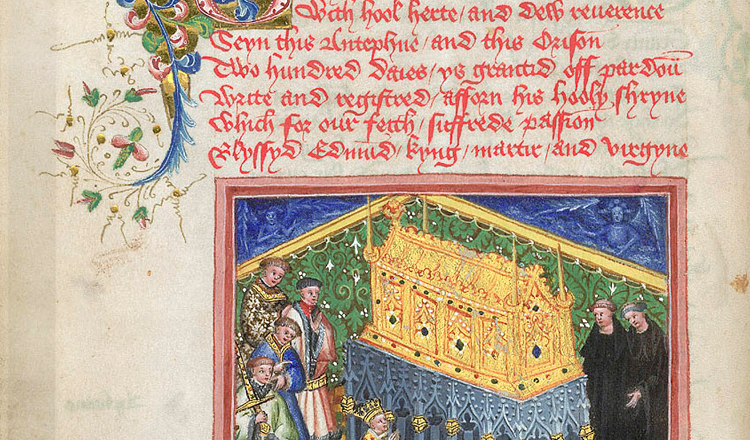 With hool herte / and dew reuerence
Seyn this Antephne / and this Orison
Two hundred daies / ys grantid off pardoū
Write and registred / afforn his hooly shryne
Which for our feith / suffrede passion
Blyssyd Edmūd / kyng / martir / and virgyne